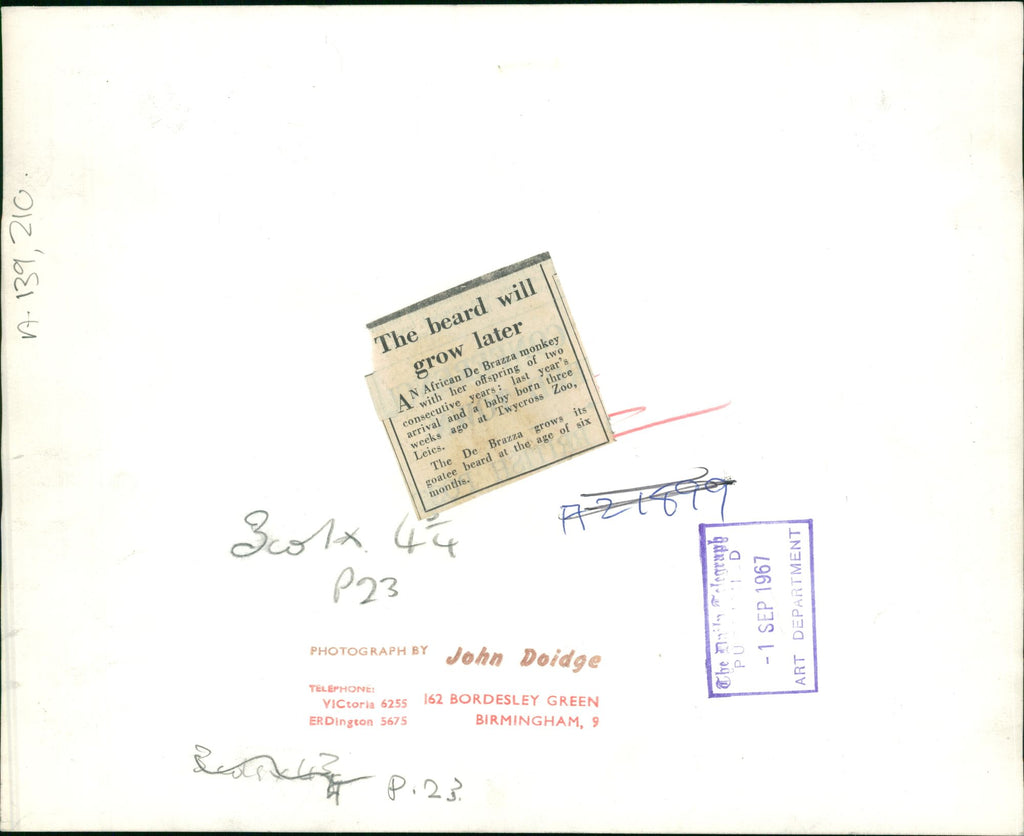 A. 139, 210.
The beard will
grow later
AN African De Brazza monkey
with her offspring of two
consecutive years: last year's
arrival and a baby born three
weeks ago at Twycross Zoo,
Leics.
The De Brazza grows its
goatee beard at the age of six
months.
A21899
3 col x. 4 3/4
P23
The Daily Telegraph
-1 SEP 1967
ART DEPARTMENT
PHOTOGRAPH BY John Doidge
TELEPHONE:
VICtoria 6255
ERDington 5675
162 BORDESLEY GREEN
BIRMINGHAM, 9
P.23.